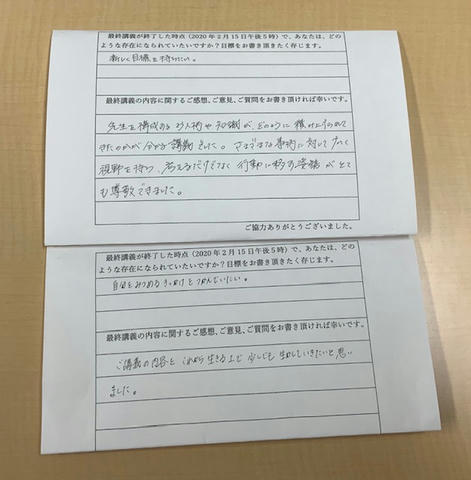 最終講義が終了した時点（2020年2月15日午後5時）で、あなたは、ど
のような存在になられていたいですか？目標をお書き頂きたく存じます。
新しく目標を持ちたい。
最終講義の内容に関するご感想、ご意見、ご質問をお書き頂ければ幸いです。
先生を構成する お人柄や知識が、どのように積み上げられて
きたのかが分かる講義でした。さまざまな事柄に対して広く
視野を持つ、考えるだけでなく行動に移す姿勢がとて
も尊敬できました。
ご協力ありがとうございました。
最終講義が終了した時点（2020年2月15日午後5時）で、あなたは、どの
ような存在になられていたいですか？目標をお書き頂きたく存じます。
自分をみつめるきっかけをつかんでいたい。
最終講義の内容に関するご感想、ご意見、ご質問をお書き頂ければ幸いです。
ご講義の内容を これから生きる上で 少しでも 生かしていきたいと思い
ました。